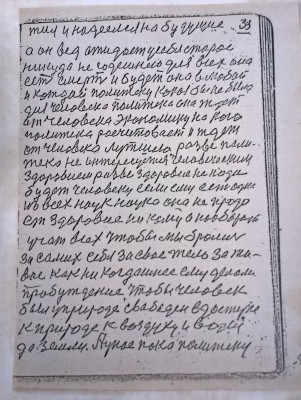 33
тил и надеелся на будущие
а он вед отидает у себя старое
никуда не годешнего для всех она
ест смерти и будет она в любой
и каждой политеку какой бы не было
для человека политека она ждет
от человека экономику на кого
политека росчитовает и ждет
от человека лутшего разве поли-
тека не интересуется человеческим
здоровием разве здоровие не пода
будет человеку если ему ест одна
из всех наук наука она не продо
ст здоровие ни кому а наоборот
учит всех чтобы мы бролис
за самих себя за свое тело за жи-
вое как ни когда шнее ему делали
пробуждение чтобы человек
был у природе свободен в доступе
к природе к воздуху и водой
до земли. А у нас пока политеку